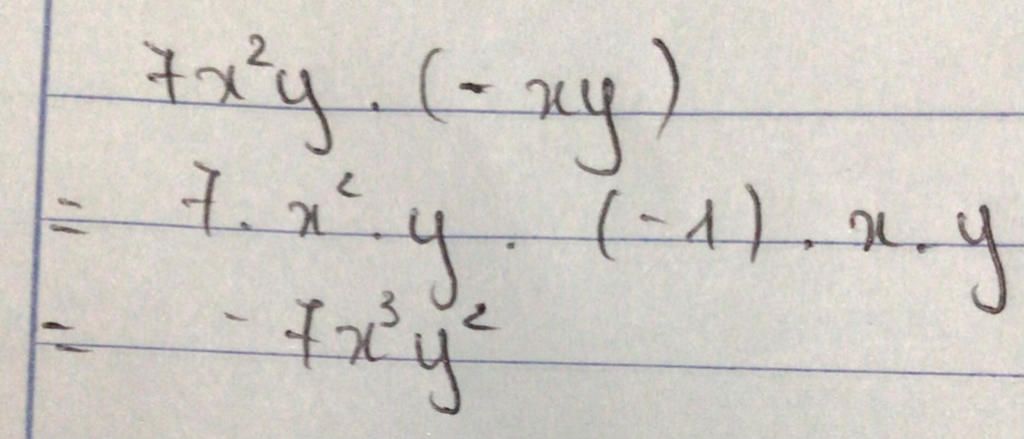 7x²y . (- xy)
= 7. x² . y . (-1) . x . y
= - 7x³y²